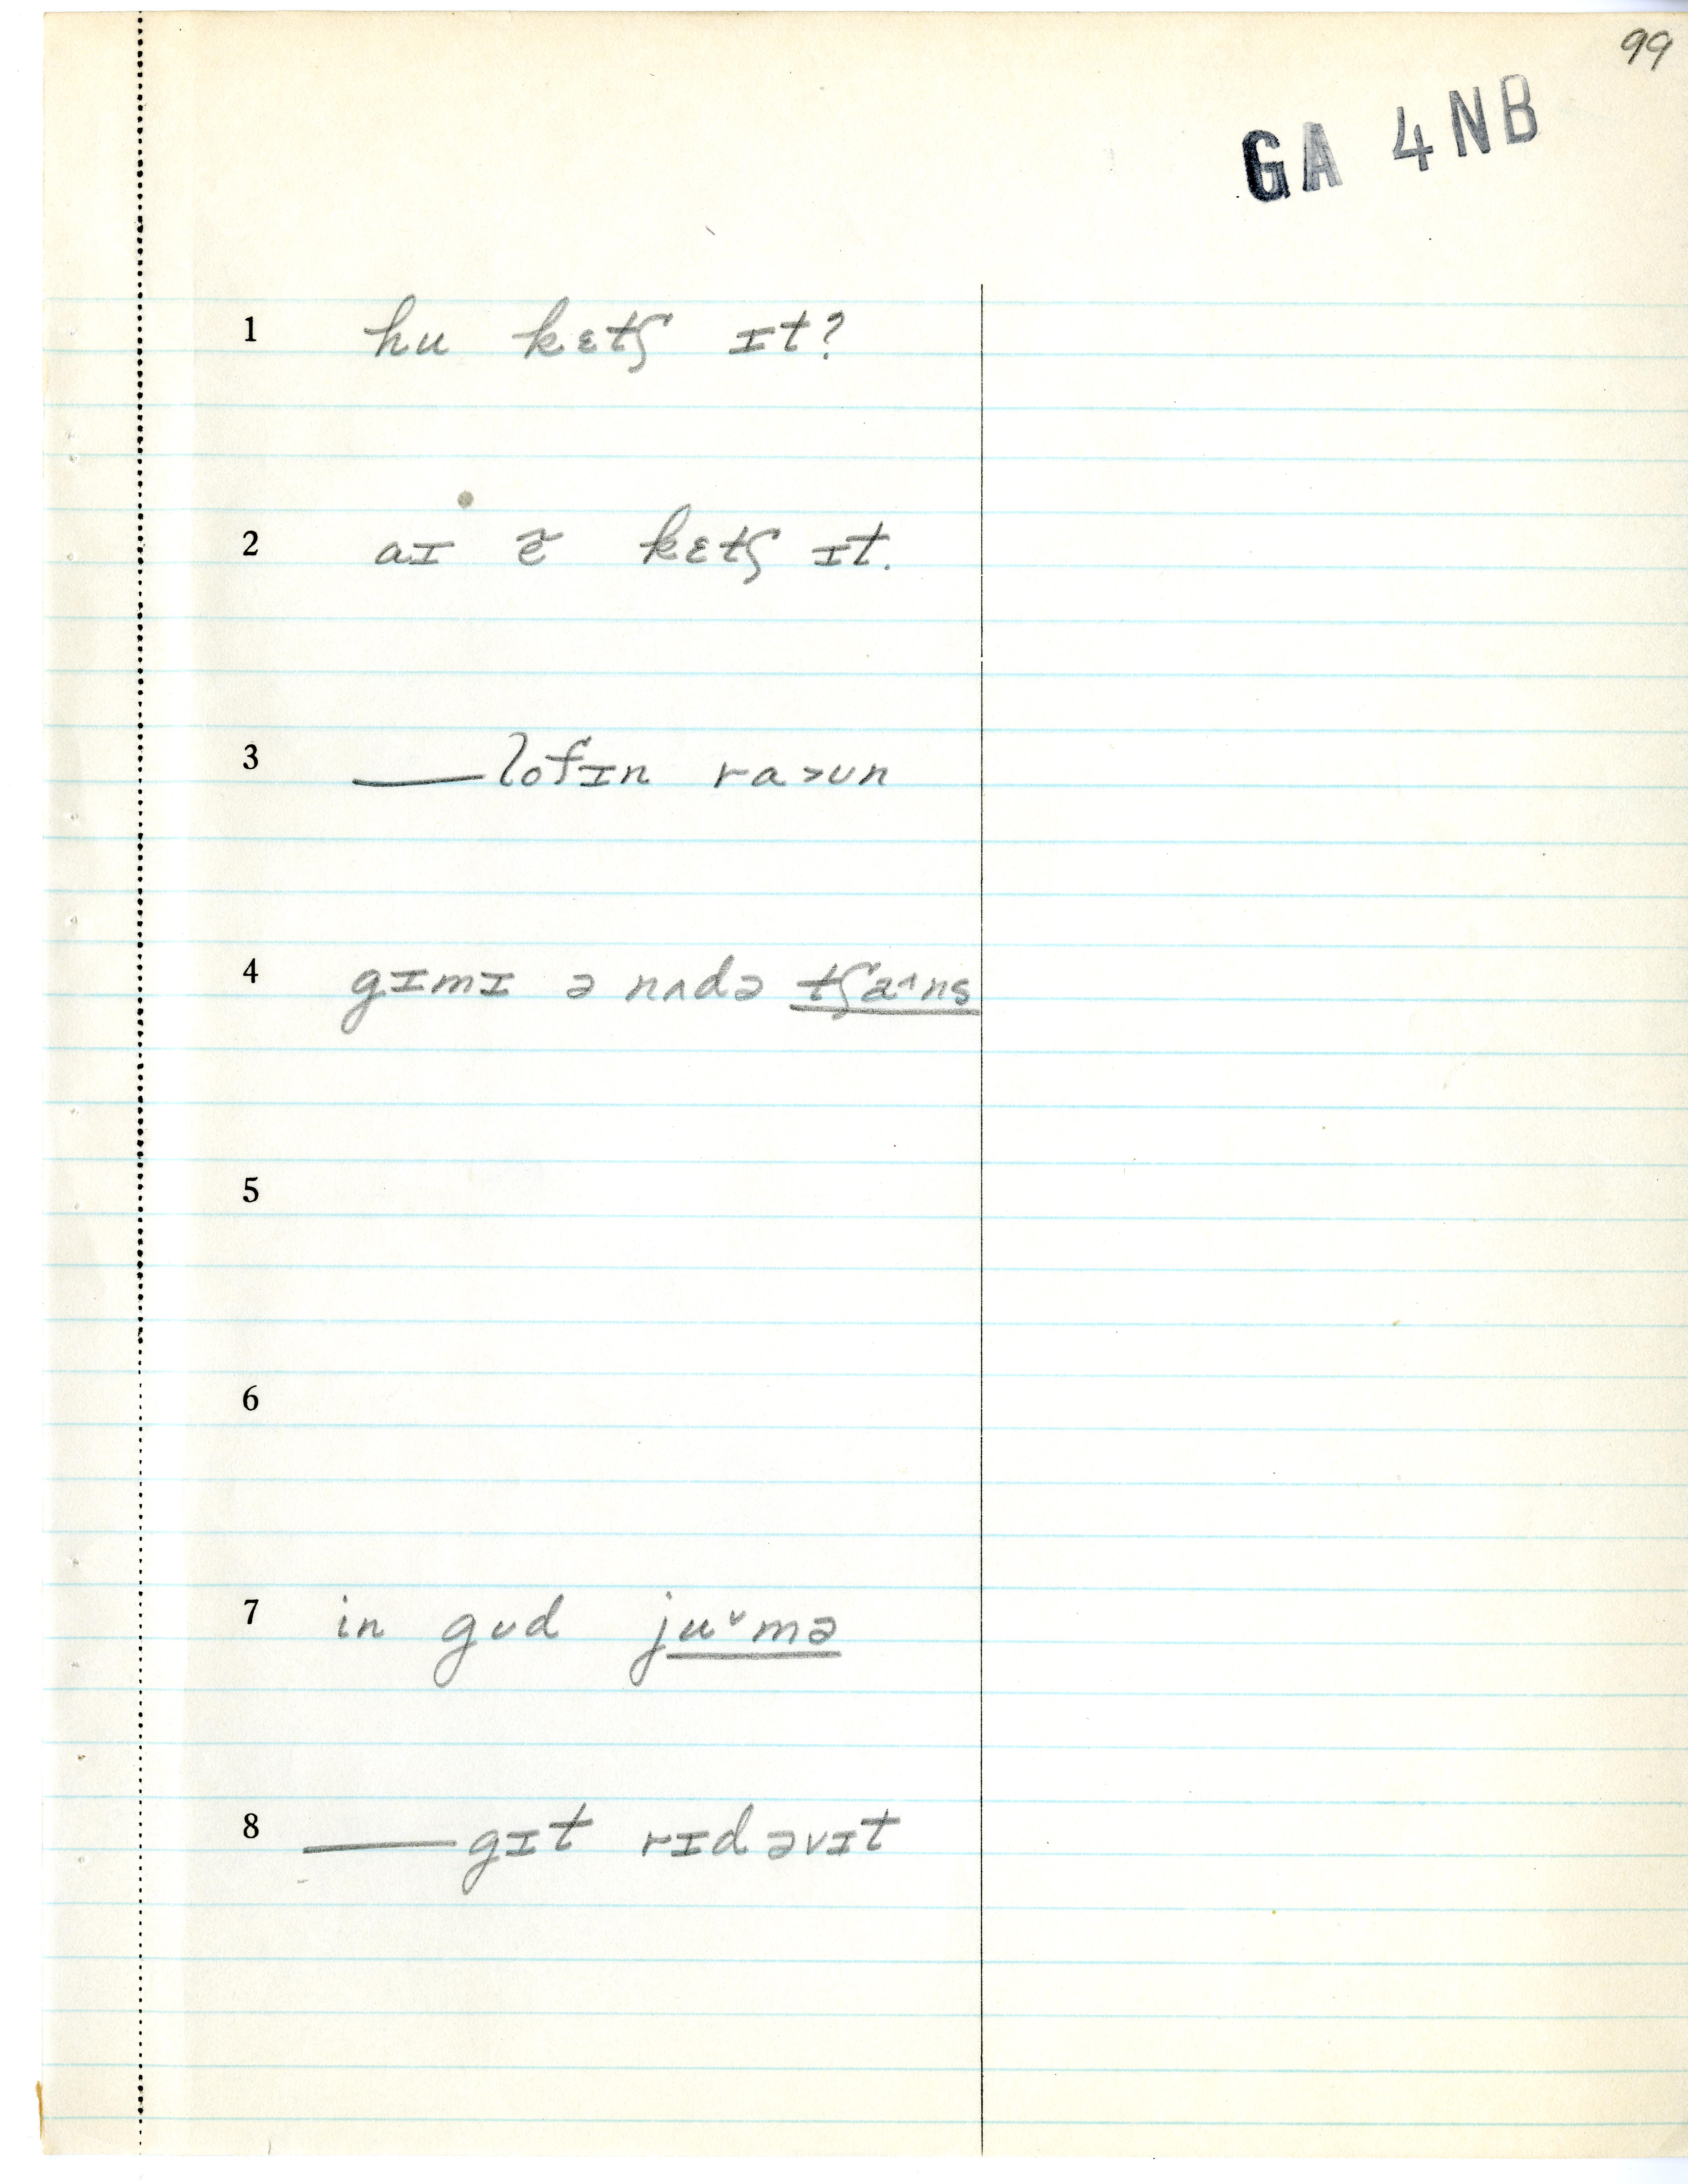 99
GA 4NB
1 hu kɛtʃ ɪt?
2 aɪ ẽ kɛtʃ ɪt.
3 ___lofɪn ra>ʊn
4 gɪmɪ ə nʌdə tʃa^ns
5
6
7 in gʊd juˇmə
8 ___gɪt rɪd əvɪt